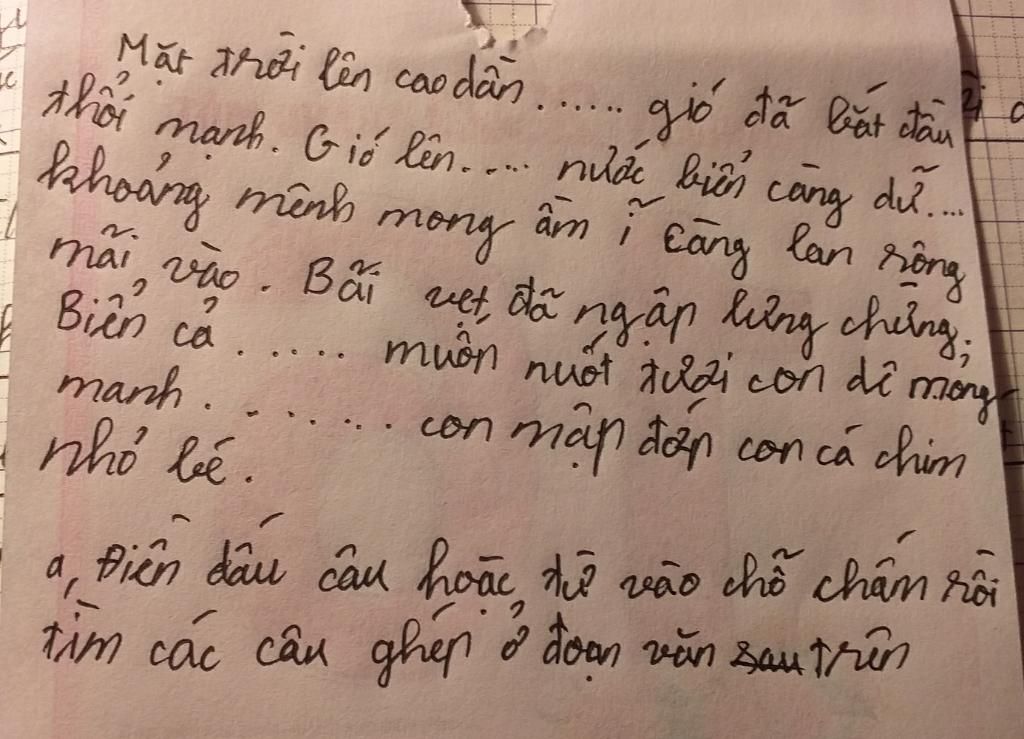 Mặt trời lên cao dần ...... gió đã bắt đầu
thổi mạnh. Gió lên..... nước biển càng dữ....
khoảng mênh mong ầm ĩ càng lan rộng
mãi vào. Bãi vẹt đã ngập lưng chừng.
Biển cả ..... muốn nuốt tươi con đê mỏng
manh ........ con mập đớp con cá chim
nhỏ bé.
a, Điền dấu câu hoặc từ vào chỗ chấm rồi
tìm các câu ghép ở đoạn văn sau trên